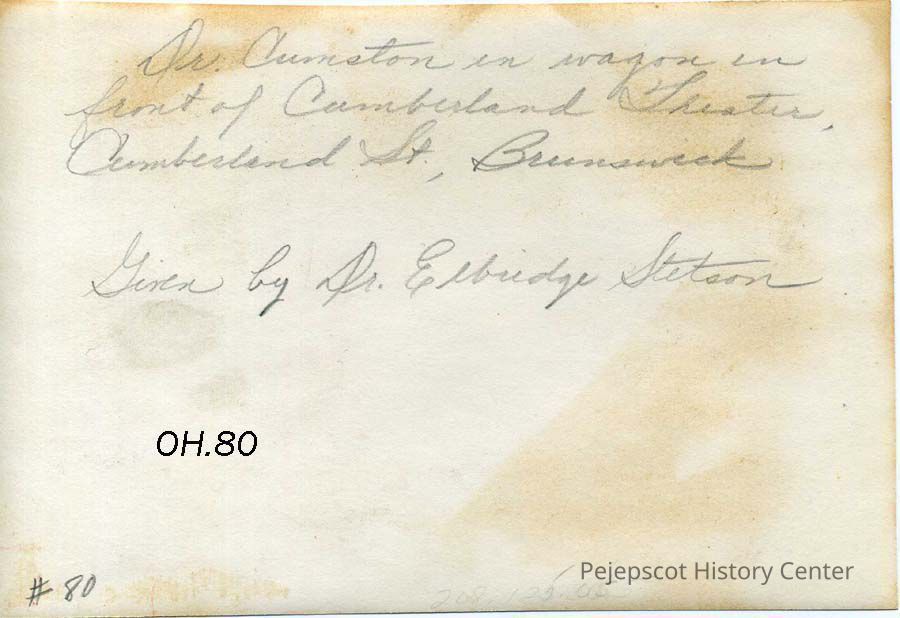 Dr. Cumston in wagon in
front of Cumberland Theater,
Cumberland St., Brunswick
Given by Dr. Elbridge Stetson
OH.80
Pejepscot History Center
# 80